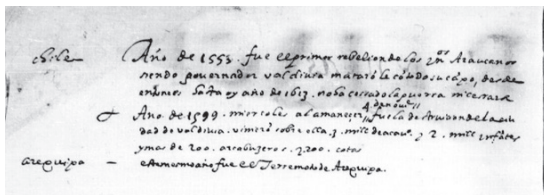 chile Año de 1553. fue el primer rebelion de los yn.os Araucanos
siendo governador valdivia mataró le cō todo su cāpo, desde
entonces hasta oy año de 1613. no ha cesado la guerra ni cesara
Año de 1599. miercoles al amanecer fue la destruicion de la ciu
dad de valdivia. vinierō sobre ella. 3. mill de acavº. y 2. mill infātes
y mas de 200. arcabuzeros. y 200. cotas
Arequipa — este mesmo año fue el Terremoto de Arequipa.